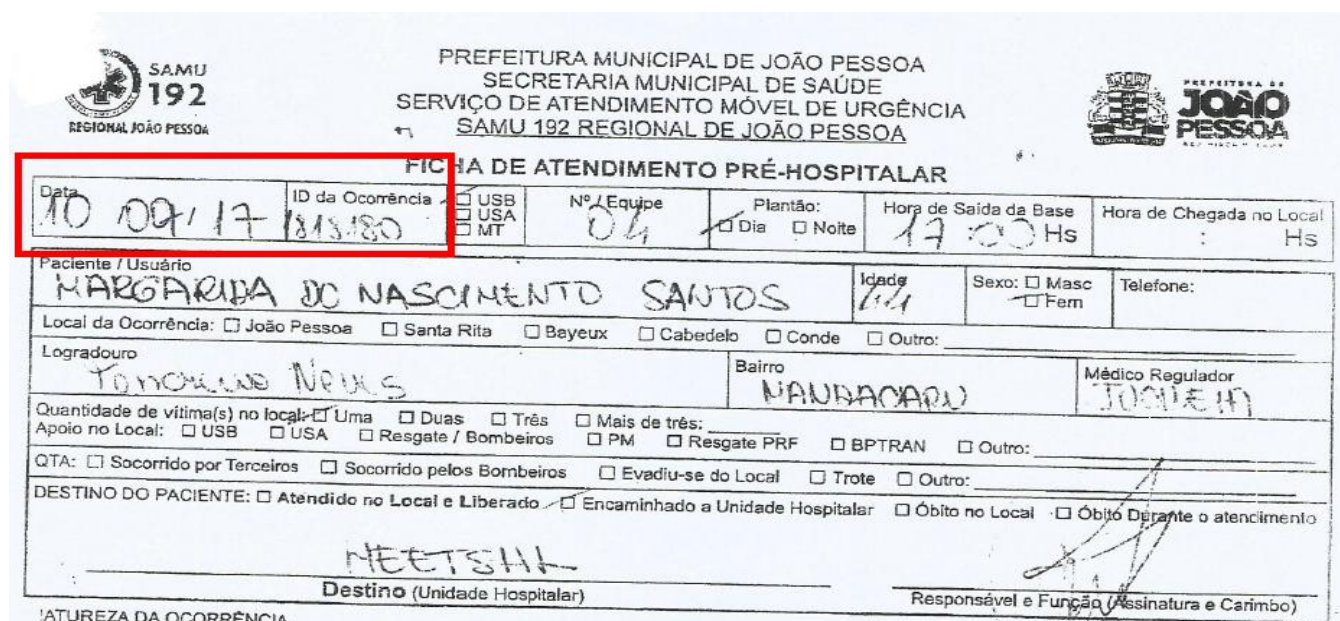 SAMU
192
REGIONAL JOÃO PESSOA
PREFEITURA MUNICIPAL DE JOÃO PESSOA
SECRETARIA MUNICIPAL DE SAÚDE
SERVIÇO DE ATENDIMENTO MÓVEL DE URGÊNCIA
SAMU 192 REGIONAL DE JOÃO PESSOA
PREFEITURA DE
JOÃO
PESSOA
FICHA DE ATENDIMENTO PRÉ-HOSPITALAR
Data ID da Ocorrência USB Nº / Equipe Plantão: Hora de Saída da Base Hora de Chegada no Local
10 09/17 1818180 USA 04 Dia Noite 17:00 Hs : Hs
MT
Paciente / Usuário Idade Sexo: Masc Telefone:
MARGARIDA DO NASCIMENTO SANTOS 44 Fem
Local da Ocorrência: João Pessoa Santa Rita Bayeux Cabedelo Conde Outro:
Logradouro Bairro Médico Regulador
Neves MANDACARU
Quantidade de vítima(s) no local: Uma Duas Três Mais de três:
Apoio no Local: USB USA Resgate / Bombeiros PM Resgate PRF BPTRAN Outro:
QTA: Socorrido por Terceiros Socorrido pelos Bombeiros Evadiu-se do Local Trote Outro:
DESTINO DO PACIENTE: Atendido no Local e Liberado Encaminhado a Unidade Hospitalar Óbito no Local Óbito Durante o atendimento
HEETSHL
Destino (Unidade Hospitalar) Responsável e Função (Assinatura e Carimbo)
ATUREZA DA OCORRÊNCIA